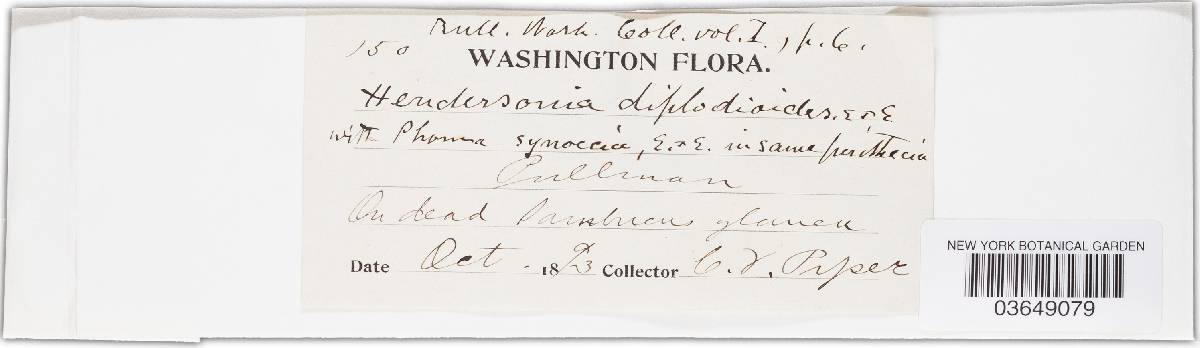 Bull. Torr. Coll. vol. I., p. 6.
150
WASHINGTON FLORA.
Hendersonia diplodioides. E & E
with Phoma synoecia, E. & E. in same perithecia
Pullman
On dead Sambucus glauca
Date Oct. 1893 Collector C. V. Piper
NEW YORK BOTANICAL GARDEN
03649079